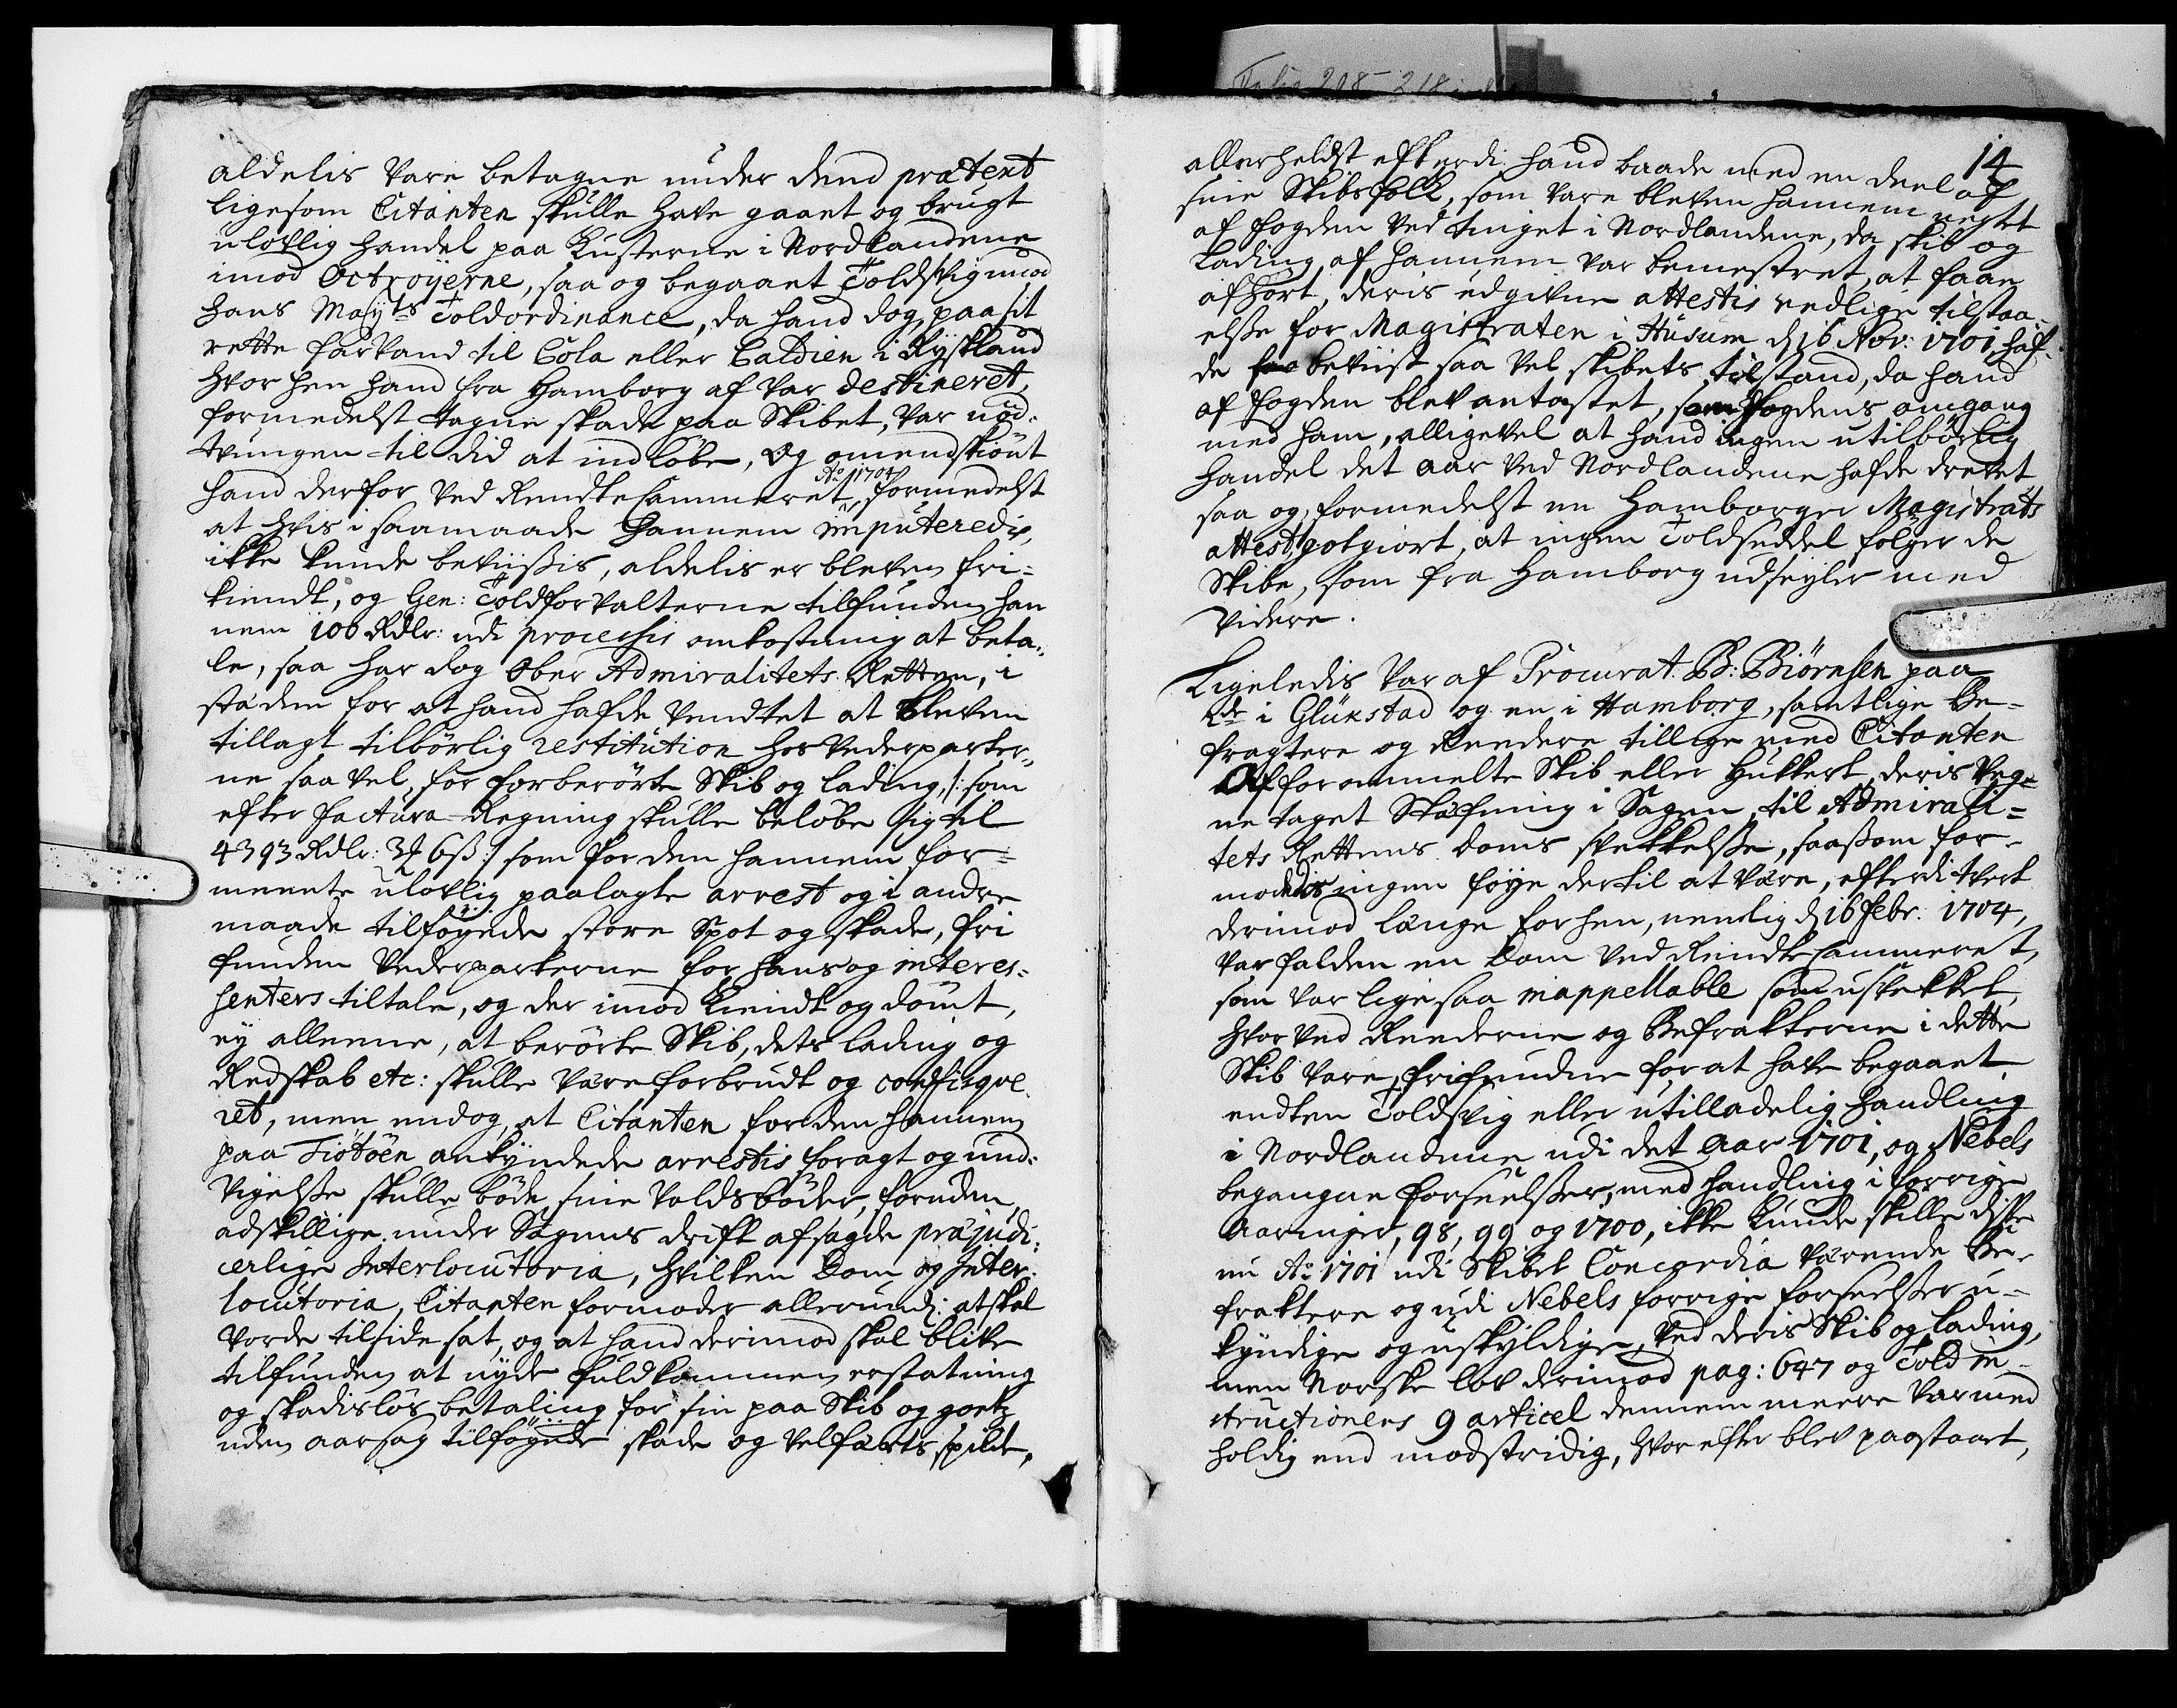 Folio 208-218
aldelis vare betagne under dend prætext
ligesom Citanten skulle have gaaet og brugt
ulovlig handel paa Kusterne i Nordlandene
imod Octroÿerne, saa og begaaet Toldsvig imod
hans Maÿts Toldordinance, da hand dog, paa sit
rette farvand til Cola eller Caldien i Rÿsland
hvor hen hand fra Hamborg af var destineret,
formedelst tagne skade paa Skibet, var nød-
tvungen til did at indløbe, Og omendskiønt
Ao 1704
hand derfor ved Rendtekammeret, formedelst
at hvis i saamaade hannem imputeredis,
ikke kunde beviisis, aldelis er bleven fri-
kiendt, og Gen: Toldforvalterne tilfunden han
nem 100 Rdlr: udi processis omkostning at beta-
le, saa har dog Ober Admiralitets Retten, i
stæden for at hand hafde vendtet at bleven
tillagt tilbørlig restitution hos Vederparter-
ne saa vel, for forberørte Skib og lading, /: som
efter factura Regning skulle beløbe sig til
4393 Rdlr: 3 6ß :/ som for den hannem for-
meente ulovlig paalagte arrest og i andre
maade tilføÿede store Spot og skade, fri
funden Vederparterne for hans og interes-
senters tiltale, og der imod kiendt og dømt,
eÿ alleene, at berørte Skib, dets lading og
Redskab etc: skulle være forbrudt og confisqve-
ret, men endog, at Citanten for den hannem
paa Tiøtøen ankÿndede arrestis foragt og und-
vigelsse skulle bøde sine Voldsbøder, foruden
adskillige under Sagens drift afsagde præjudi-
cerlige Interlocutoria, hvilken Dom og Inter-
locutoria, Citanten formoder allerund: at skal
vorde tilside sat, og at hand derimod skal blive
tilfunden at nÿde fuldkommen erstatning
og skadisløs betaling for sin paa Skib og goetz
uden aarsag tilføÿede skade og velfærts spilde,
14
allerheldst efterdi hand baade med en deel af
sine Skibsfolk, som vare bleven hannem negtet
af fogden ved tinget i Nordlandene, da skib og
Lading af hannem var bemestret, at faae
afhørt, deris udgivne attestis edlige tilstaa-
elsse for Magistraten i Husum d 16 Nov: 1701, haf-
de beviist saa vel skibets tilstand, da hand
af fogden blev antastet, som fogdens omgang
med ham, alligevel at hand ingen utilbørlig
handel det aar ved Nordlandene hafde drevet
saa og, formedelst en Hamborger Magistrats
attest, gotgiort, at ingen Toldseddel følger de
Skibe, som fra Hamborg udseÿler med
videre.
Ligeledis var af Procurat: B: Biørnsen paa
2de i Glükstad og en i Hamborg, samtlige Be-
fragtere og Reedere tillige med Citanten
Af forommelte Skib eller Hukkert, deris Veg-
ne taget Stæfning i Sagen, til Admirali-
tets Rettens doms svekkelsse, saassom for-
modedis ingen føÿe dertil at være, efterdi tvert
derimod længe forhen, nemlig d 16 febr: 1704,
var falden en Dom ved Rendtekammeret,
som var lige saa inappellable som usvekket,
hvorved Reederne og Befrakterne i dette
Skib vare frifundne for at have begaaet
endten Toldsvig eller utilladelig handling
i Nordlandene udi det Aar 1701, og Nebels
begangne forseelsser, med handling i forrige
Aaringer, 98, 99 og 1700, ikke kunde skille disse
nu Ao 1701 udi Skibet Concordia værende Be-
fraktere og udi Nebels forrige forseelsser u-
kÿndige og uskÿldige, ved deris Skib og lading,
men Norske lov derimod pag: 647 og Told in-
structionens 9 articel dennem meere var med
holdig end modstridig, hvorefter blev paastaaet,